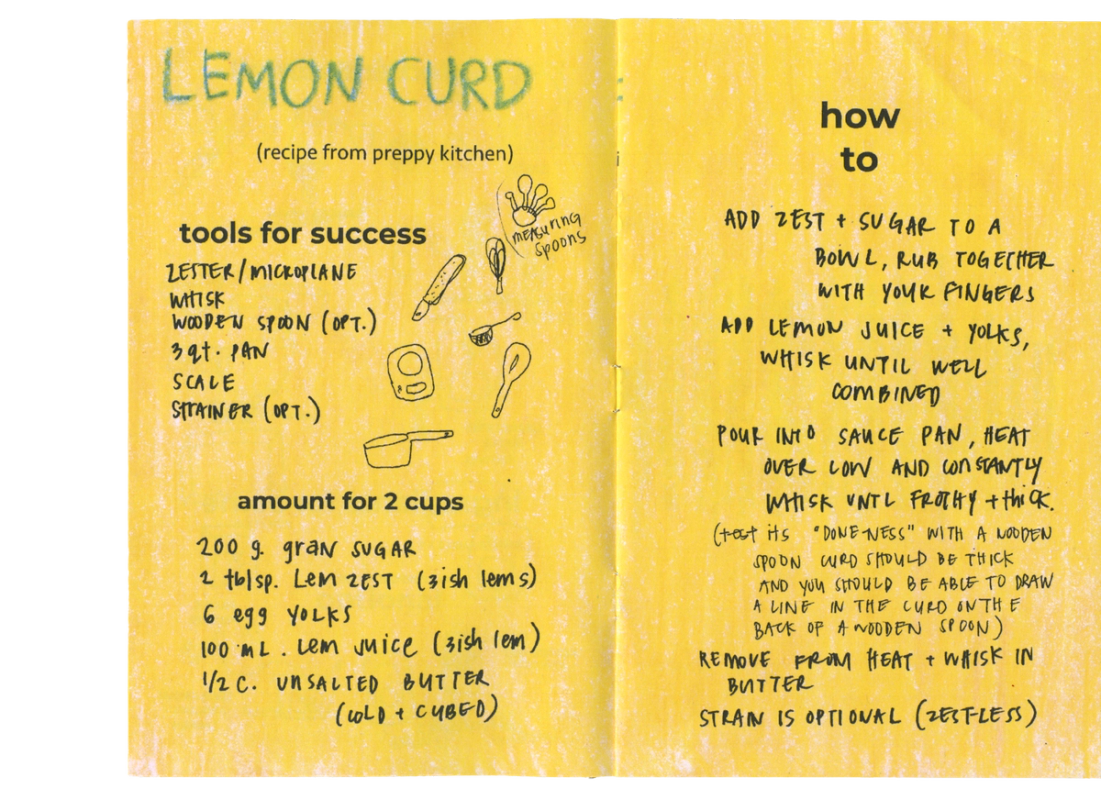 LEMON CURD
(recipe from preppy kitchen)
measuring
spoons
tools for success
ZESTER/MICROPLANE
WHISK
WOODEN SPOON (OPT.)
3 qt. PAN
SCALE
STRAINER (OPT.)
amount for 2 cups
200 g. gran SUGAR
2 tblsp. Lem ZEST (3ish lems)
6 egg YOLKS
100 mL. Lem Juice (3ish lem)
1/2 C. UNSALTED BUTTER
(COLD + CUBED)
how
to
ADD ZEST + SUGAR TO A
BOWL, RUB TOGETHER
WITH YOUR FINGERS
ADD LEMON JUICE + YOLKS,
WHISK UNTIL WELL
COMBINED
POUR INTO SAUCE PAN, HEAT
OVER LOW AND CONSTANTLY
WHISK UNTL FROTHY + thick.
(test its "DONE-NESS" WITH A WOODEN
SPOON CURD SHOULD BE THICK
AND YOU SHOULD BE ABLE TO DRAW
A LINE IN THE CURD ON THE
BACK OF A WOODEN SPOON)
REMOVE FROM HEAT + WHISK IN
BUTTER
STRAIN IS OPTIONAL (ZEST-LESS)